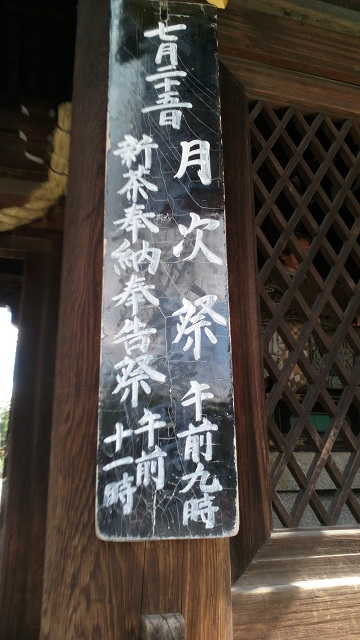 七月二十五日
月次祭 午前九時
新茶奉納奉告祭 午前十一時